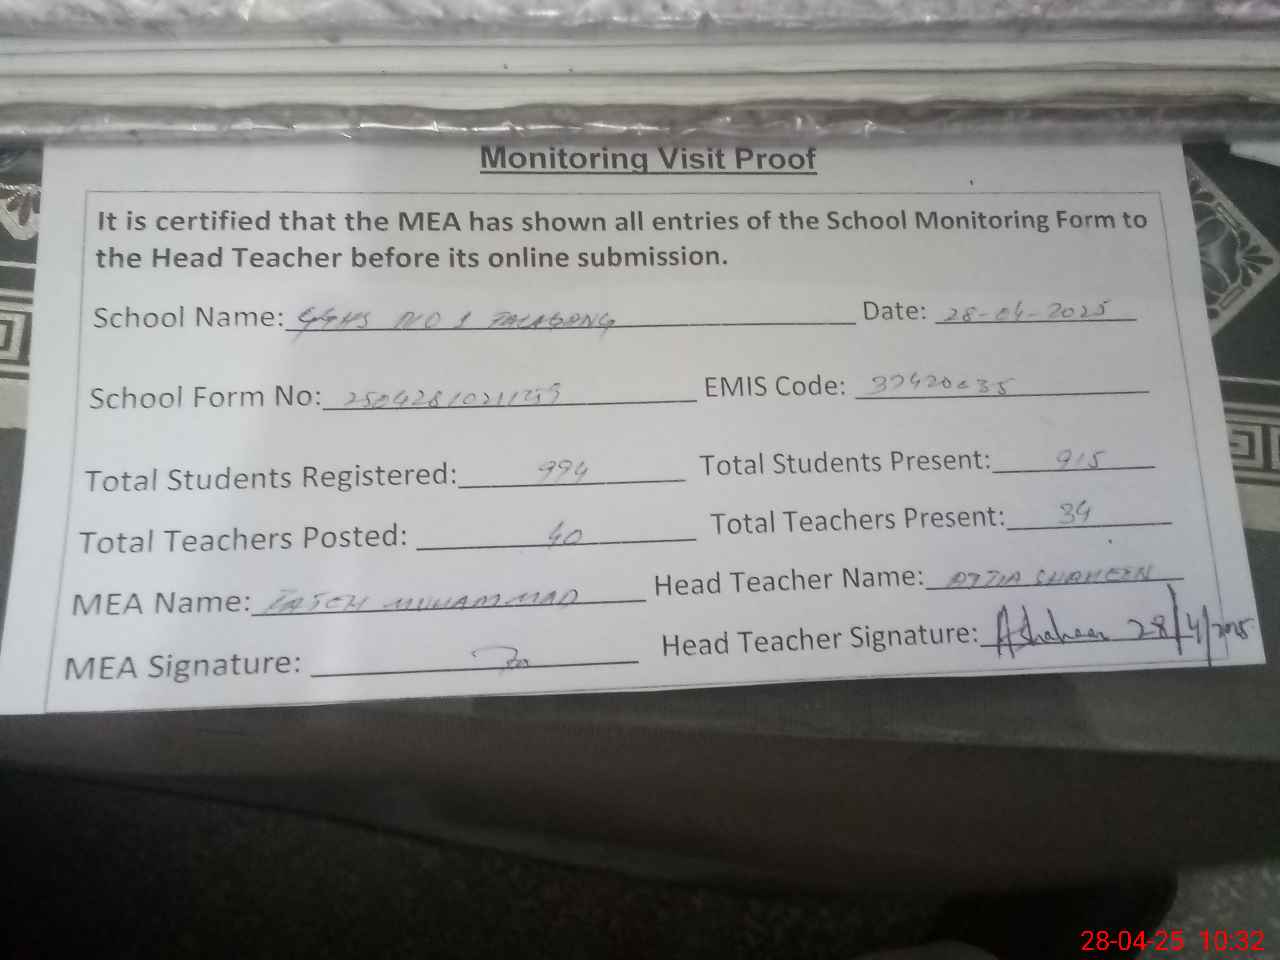 Monitoring Visit Proof
It is certified that the MEA has shown all entries of the School Monitoring Form to
the Head Teacher before its online submission.
School Name: GGHS NO 1 TALAGANG Date: 28-04-2025
School Form No: EMIS Code:
Total Students Registered: 994 Total Students Present: 915
Total Teachers Posted: 40 Total Teachers Present: 34
MEA Name: FATEH MUHAMMAD Head Teacher Name: SHAHEEN
MEA Signature: Head Teacher Signature: AShaheen 28/4/2025
28-04-25 10:32